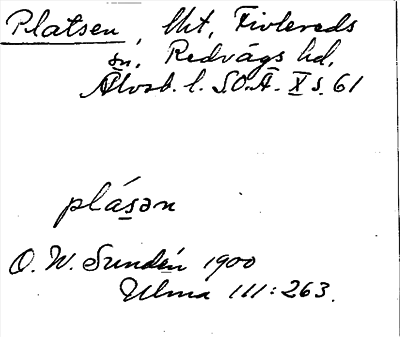 Platsen, lht, Fivlereds
sn, Redvägs hd,
Älvsb. l. SOÄ X s. 61
plásən
O. W. Sundén 1900
Ulma 111:263.